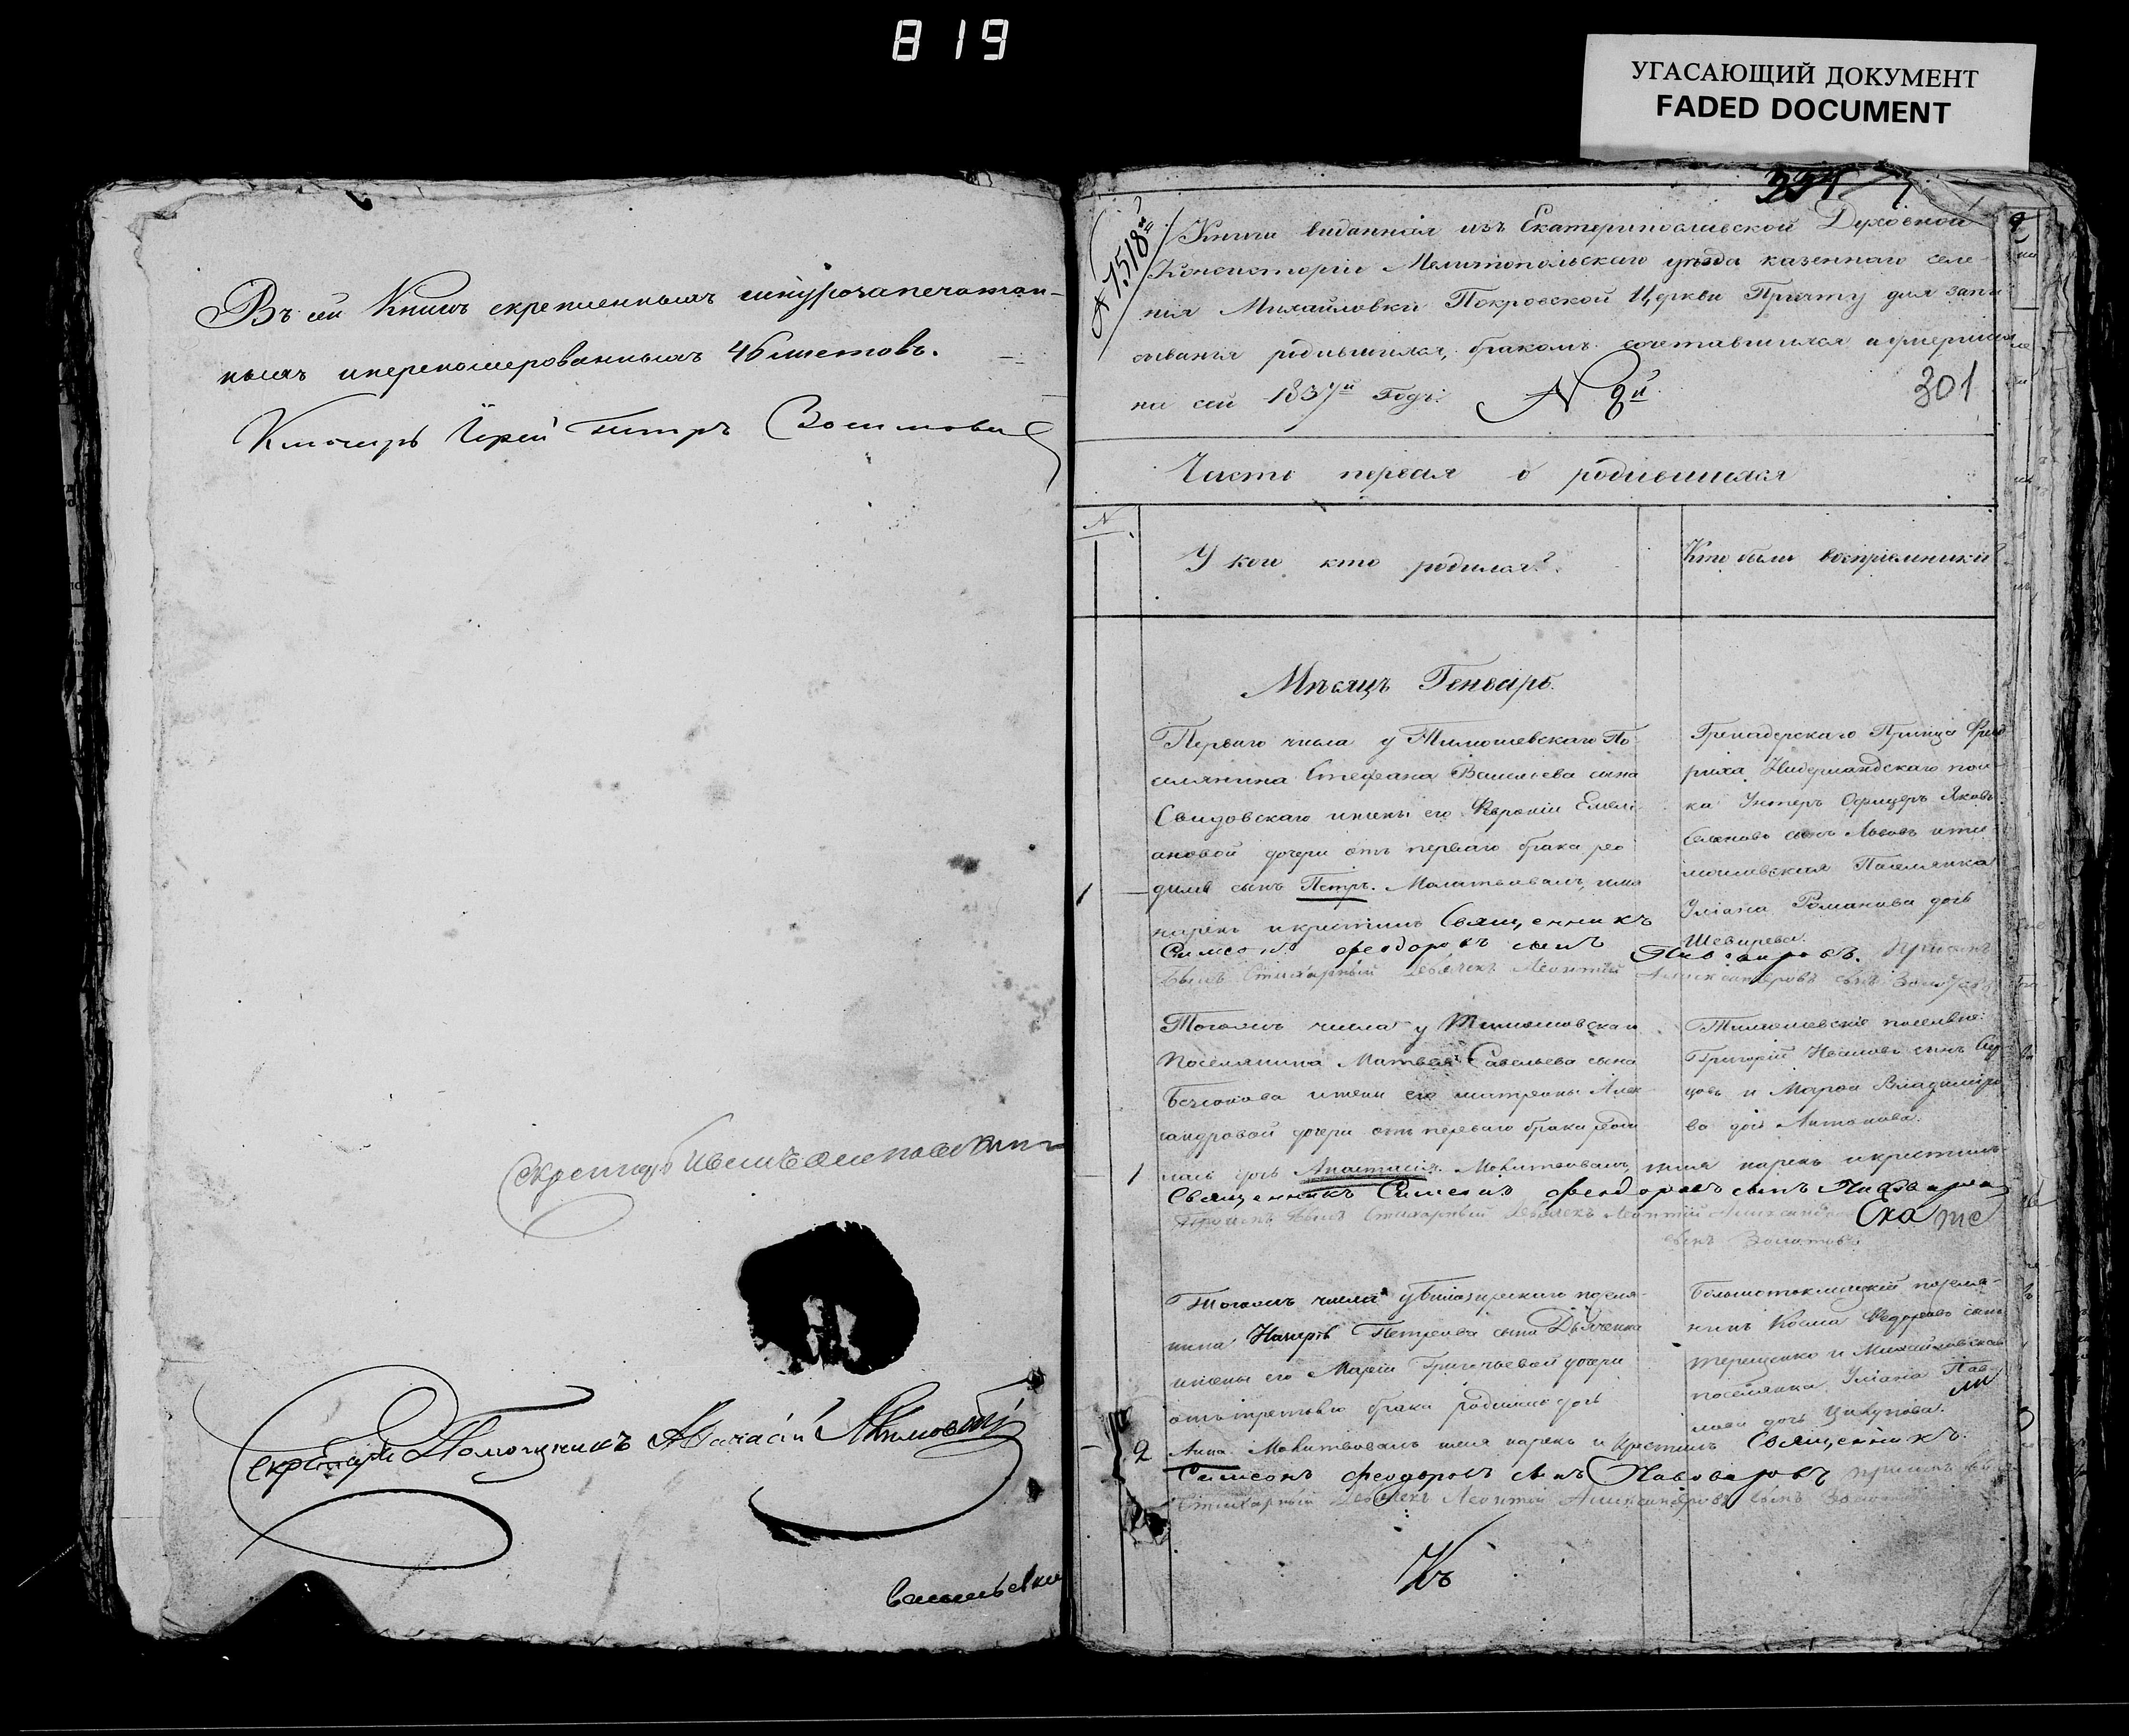 819
УГАСАЮЩИЙ ДОКУМЕНТ
FADED DOCUMENT
Въ сей Книгѣ скрепленныхъ шнурозапечатан-
ныхъ ипереномерованныхъ 46 листовъ.
Ключарь Іерей Петръ
Скрепилъ
Секретарь Помощникъ Афанасій
№ 1518
Книга виданная изъ Екатеринославской Духовной
Консисторіи Мелитопольскаго уѣзда казеннаго селе-
нія Михайловки Покровской Церкви Причту для запи
сыванія родившихся, бракомъ сочетавшихся иумершихъ
на сей 1837й Годъ. N 2й
301
Часть первая о родившихся
N
У кого кто родился?
Кто были воспріемники?
Мѣсяцъ Генварь.
Перваго числа у Тимошевскаго По-
селянина Стефана Васильева сына
Свидовскаго ижены его Февроніи Емели-
ановой дочери отъ перваго брака ро
дился сынъ Петръ. Молитвовалъ, имя
нарекъ икрестилъ Священникъ
Симеонъ Феодоровъ сынъ Пивоваровъ. при томъ
былъ Стихарный Дьячекъ Леонтій Александровъ сынъ
Гренадерскаго Принца Фрид
риха Нидерландскаго пол
ка Унтеръ Офицеръ Яковъ
сынъ Львовъ ити-
мошевская Поселянка
Уліана Романова дочь
Шевирева.
1
Тогожъ числа у Тимошовскаго
Поселянина Матвея Савельева сына
ижены его матрены Алек-
сандровой дочери отъ перваго брака роди
лась дочь Анастасія. Молитвовалъ, имя нарекъ икрестилъ
Священникъ Симеонъ Феодоровъ сынъ
при томъ былъ Стихарный Дьячекъ Леонтій
сынъ
Тимошевскіе поселяне:
Григорій Ивановъ сынъ
и Марфа Владиміро
ва дочь Антонова.
1
Екате
Тогожъ числа у Білозирскаго поселя-
нина Петрова сына Дьяченка
ижены его Маріи Григорьевой дочери
отъ третьяго брака родилась дочь
Анна. Молитвовалъ имя нарекъ и крестилъ Священникъ
Симеонъ Феодоровъ сынъ Пивоваровъ притомъ
Стихарный Дьячекъ Леонтій Александровъ сынъ
Большотокмацкій поселя-
нинъ Косма Федоровъ сынъ
терещенко и Михайловская
поселянка Уліана Пав-
лова дочь
2
Къ